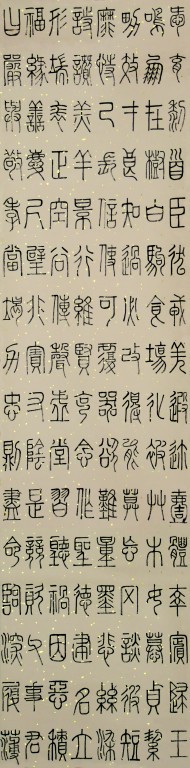 愛育黎首臣伏戎羌遐邇壹體率賓歸王
鳴鳳在樹白駒食場化被草木女慕貞絜
男效才良知過必改得能莫忘罔談彼短
靡恃己長信使可覆器欲難量墨悲絲染
詩讚羔羊景行維賢剋念作聖德建名立
形端表正空谷傳聲虛堂習聽禍因惡積
福緣善慶尺璧非寶寸陰是競資父事君
曰嚴與敬孝當竭力忠則盡命臨深履薄